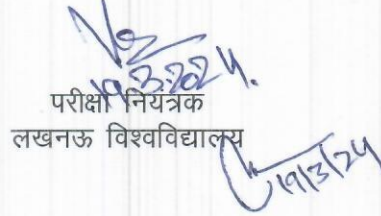 19.3.2024.
परीक्षा नियंत्रक
लखनऊ विश्वविद्यालय
19/3/24